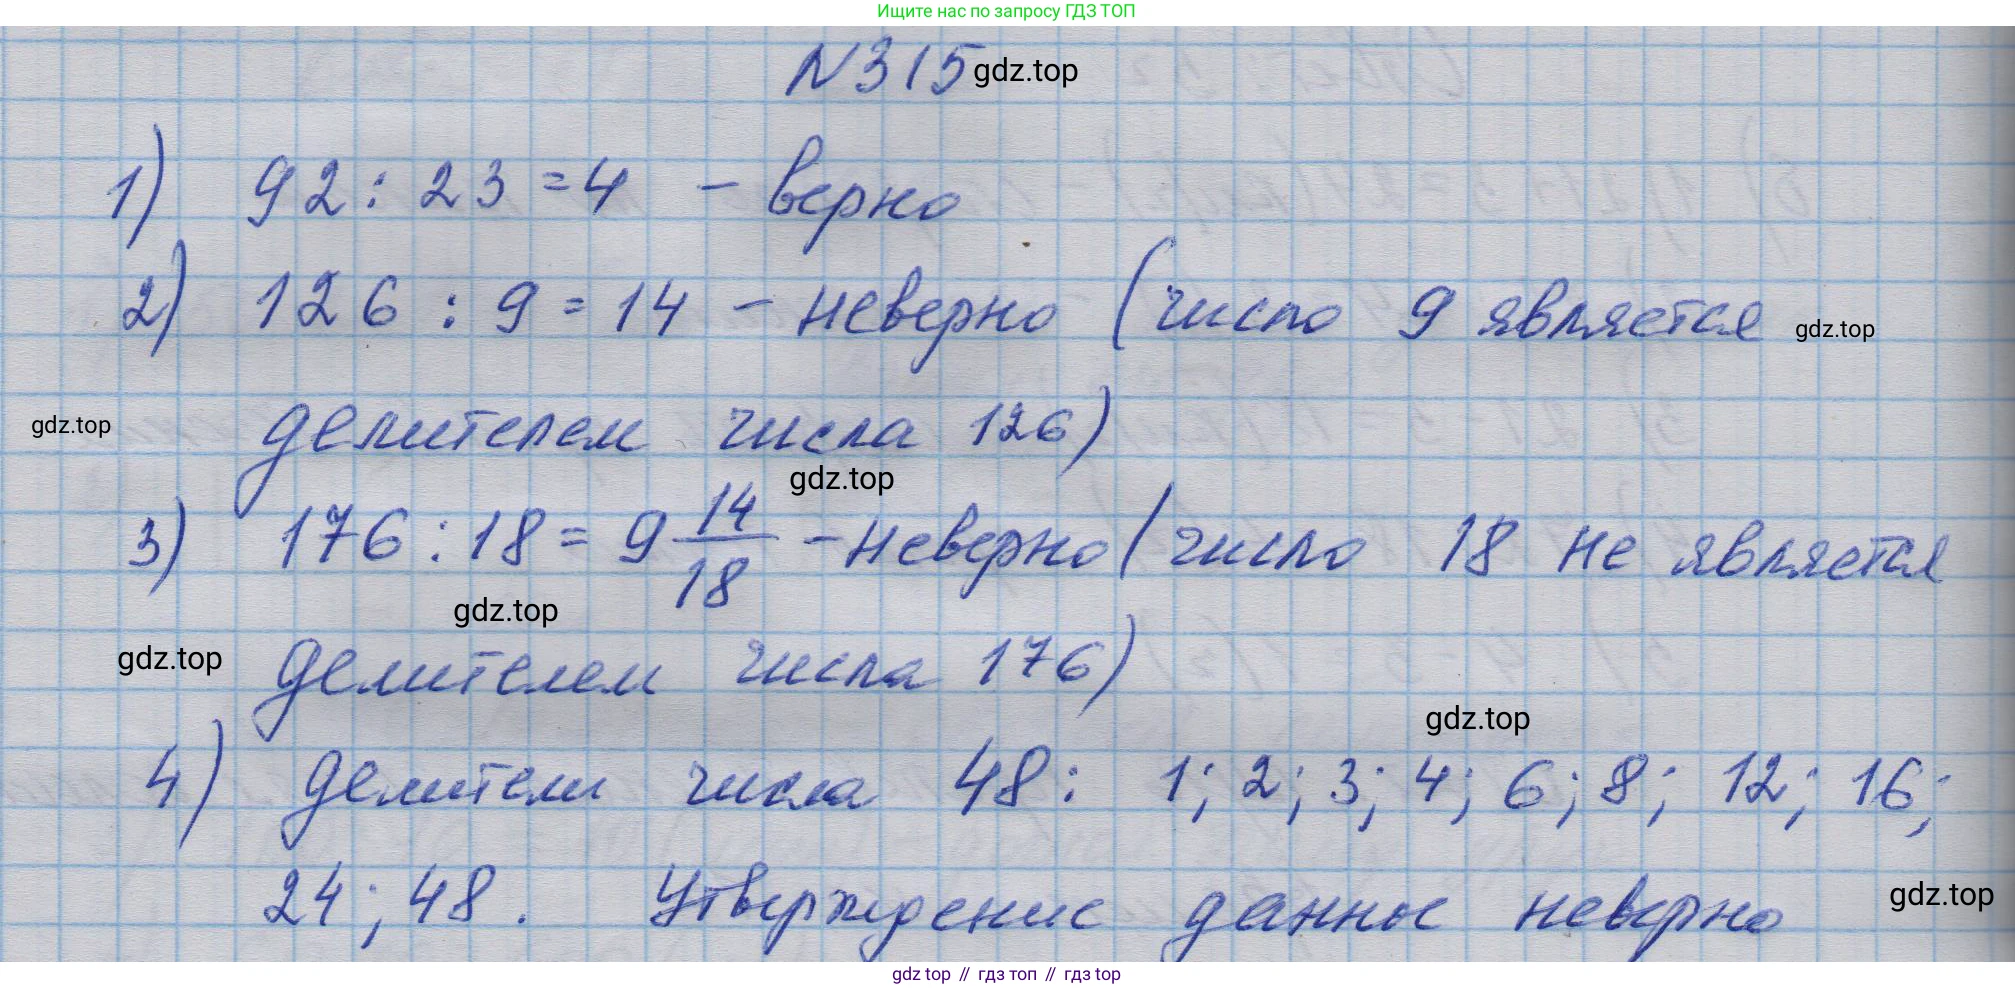 Ищите нас по запросу ГДЗ ТОП
N315 gdz.top
1) 92 : 23 = 4 - верно
2) 126 : 9 = 14 - неверно (число 9 является gdz.top
gdz.top делителем числа 126)
gdz.top
3) 176 : 18 = 9 14/18 - неверно (число 18 не является
gdz.top
gdz.top делителем числа 176)
gdz.top
4) делители числа 48: 1; 2; 3; 4; 6; 8; 12; 16;
24; 48. Утверждение данное неверно gdz.top
gdz top // гдз топ // гдз top